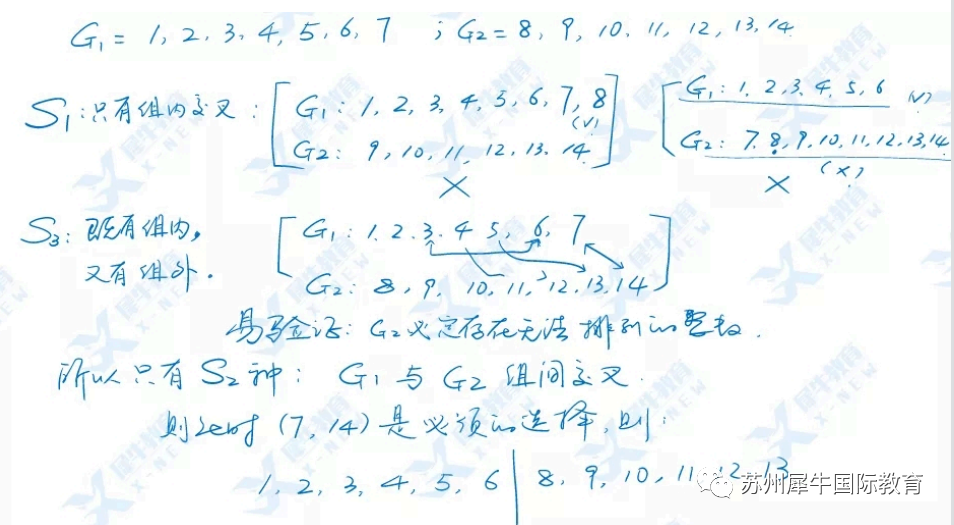 G₁ = 1, 2, 3, 4, 5, 6, 7 ; G₂ = 8, 9, 10, 11, 12, 13, 14
S₁: 只有组内交叉: G₁: 1, 2, 3, 4, 5, 6, 7, 8 (√) G₁: 1, 2, 3, 4, 5, 6 (√)
G₂: 9, 10, 11, 12, 13, 14 G₂: 7, 8, 9, 10, 11, 12, 13, 14
× × (×)
S₃: 既有组内, G₁: 1, 2, 3, 4, 5, 6, 7
又有组外. G₂: 8, 9, 10, 11, 12, 13, 14
易验证: G₂必定存在无法排列的整数.
所以只有S₂种: G₁与G₂组间交叉.
则这时 (7, 14) 是必须的选择, 则:
1, 2, 3, 4, 5, 6 | 8, 9, 10, 11, 12, 13
苏州犀牛国际教育
犀牛教育
X-NEW